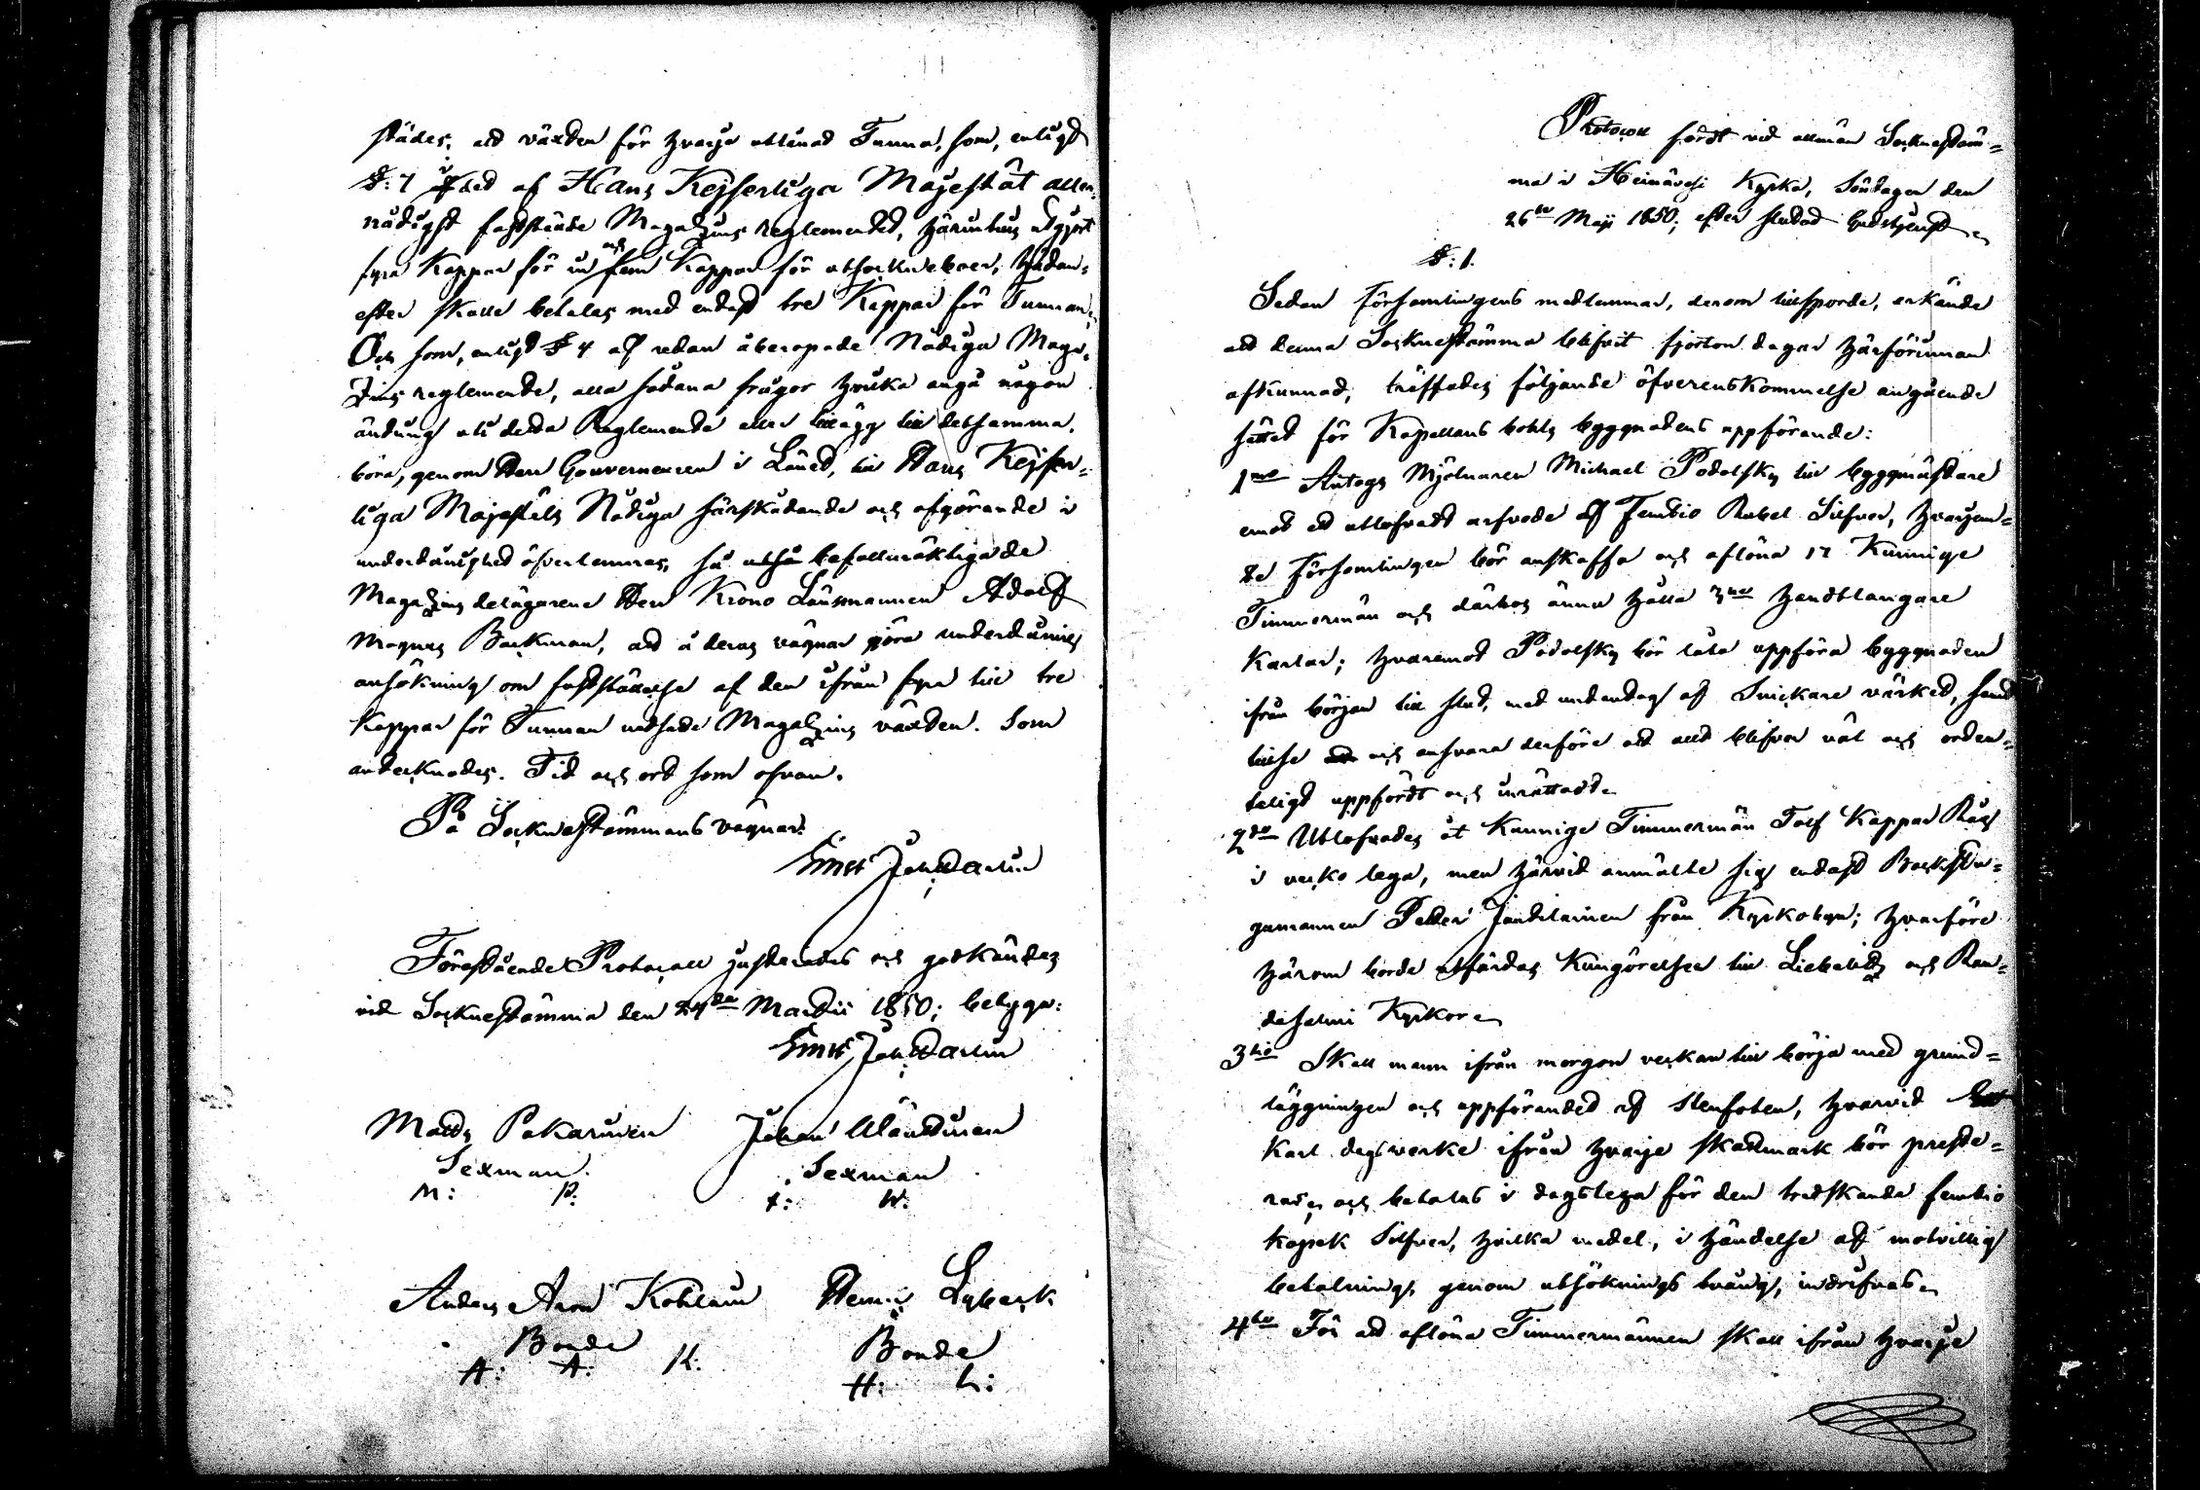 städes, att växten för hvarje utlånad Tunna, som, enligt
§: 7 i det af Hans Kejserliga Majestät aller-
nådigst faststälde Magazins reglementet, härintills utgjort
fyra Kappar för in och fem Kappar för utsockneboer, hädan-
efter skulle betalas med endast tre Kappar för Tunnan.
Och som, enligt § 4 af redan åberopade Nådiga Maga-
zins reglemente, alla sådana frågor hvilka angå någon
ändring uti detta Reglemente eller tillägg till detsamma,
böra, genom Herr Gouverneuren i Länet, till Hans Kejser-
liga Majestäts Nådiga härskådande och afgörande i
underdånighet öfverlemnas, så befullmäktigade
Magazins delägarene Herr Krono Länsmannen Adolf
Magnus Backman, att å deras vägnar göra underdånig
ansökning om fastställelse af den ifrån fyra till tre
Kappar för Tunnan nedsatte Magazins växten. Som
antecknades. Tid och ort som ofvan.
På Sockne Stämmans vägnar:
Joh
Förestående Protocoll justerades och godkändes
vid Sockne Stämma den 24de Martii 1850; betyga:
Joh
Matts Pakarinen Johan Väänänen
Sexman. Sexman
M: P. J: W:
Anders Aron Kohlain Henric Lybeck
Bonde Bonde
A: A: K: H: L:
Protocoll fördt vid allmän Socknestäm-
ma i Heinävesi Kyrka, Söndagen den
26te Maji 1850; efter slutad Gudstjenst.
§: 1.
Sedan Församlingens medlemmar, derom tillsporde, erkände
att denna Socknestämma blifvit fjorton dagar härförinnan
afkunnad, träffades följande öfverenskommelse angående
sättet för Kapellans bohls byggnadens uppförande:
1mo Antogs Mjölnaren Michael Podolsky till byggmästare
emot ett utlofvadt arfvode af Femtio Rubel Silfver, hvarjem-
te Församlingen bör anskaffa och aflöna 12 Kunnige
Timmermän och därhos ännu hålla 3ne Handtlangare
Karlar; hvaremot Podolsky bör låta uppföra byggnaden
ifrån början till slut, med undantag af Snickare värket, samt
tillse och ansvara derföre att allt blifver väl och orden-
teligt uppfördt och inrättadt.
2do Utlofvades åt Kunnige Timmermän Tolf Kappar Råg
i vecko lega, men härvid anmälte sig endast Backstu-
gumannen Petter Jandilainen från Kyrkobyn; hvarföre
härom borde utfärdas Kungörelser till Liebelitz och Ran-
tasalmi Kyrkor.
3tio Skall man ifrån morgon veckan till börja med grund-
läggningen och uppförandet af stenfoten, hvarvid Ett
Karl dagsverke ifrån hvarje skattmark bör preste-
ras, och betalas i dagslega för den tredskande femtio
kopek Silfver, hvilka medel, i händelse af motvillig
betalning, genom utsöknings tvång, indrifvas.
4to För att aflöna Timmermännen skall ifrån hvarje